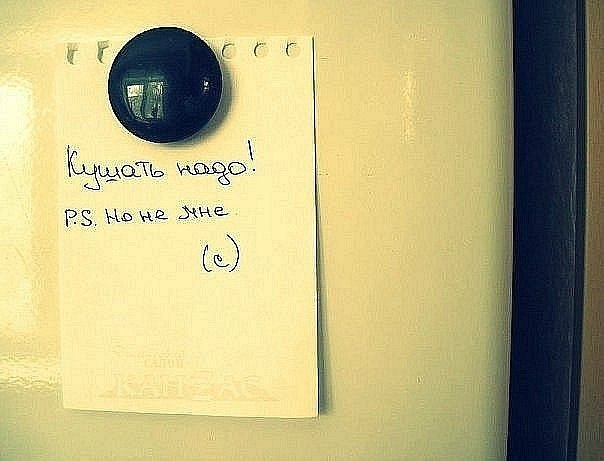 Кушать надо!
P.S. Но не мне.
(с)
КАНЗАС